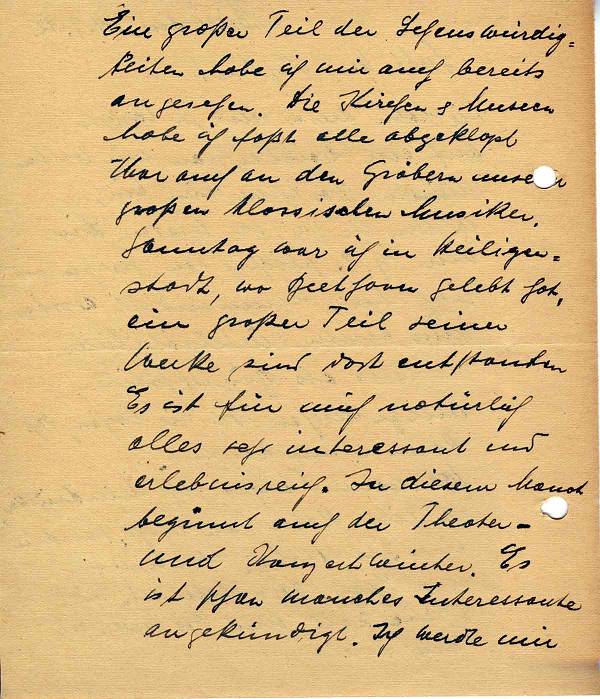 Ein großer Teil der Sehenswürdig=
keiten habe ich mir auch bereits
angesehen. Die Kirchen & Museen
habe ich fast alle abgeklopt
War auch an den Gräbern unserer
großen klassischen Musiker.
Sonntag war ich in Heiligen=
stadt, wo Beethoven gelebt hat,
ein großer Teil seiner
Werke sind dort entstanden
Es ist für mich natürlich
alles sehr interessant und
erlebnisreich. In diesem Monat
beginnt auch der Theater-
und Konzertwinter. Es
ist schon manches Interessante
angekündigt. Ich werde mir